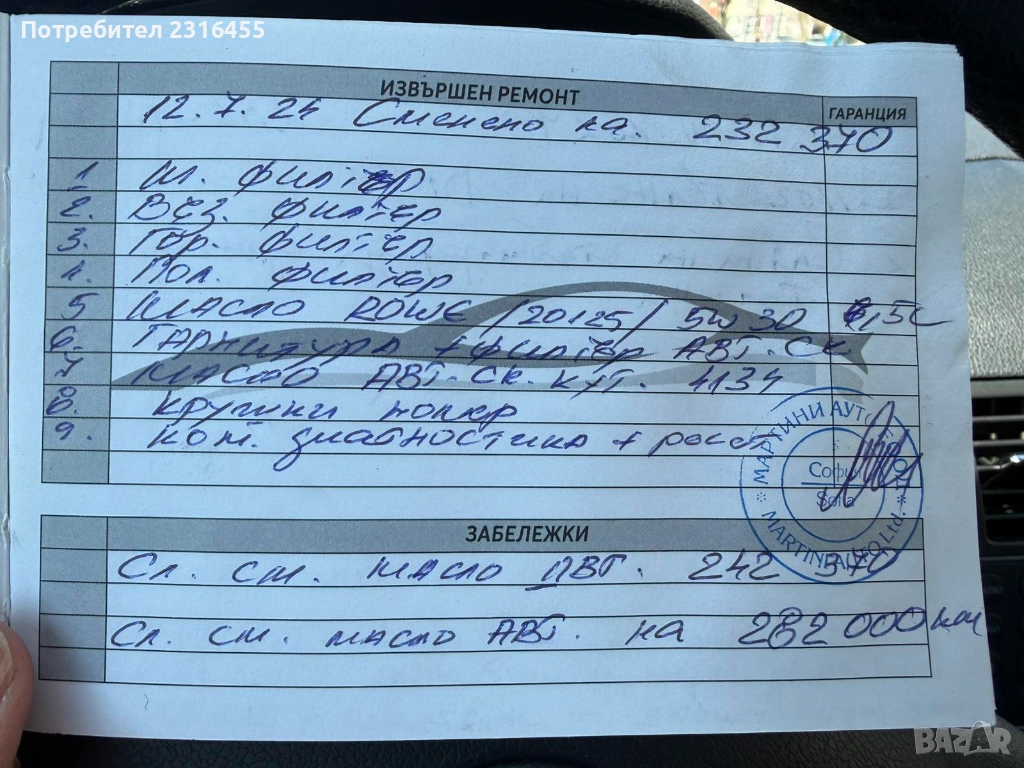 Потребител 2316455
ИЗВЪРШЕН РЕМОНТ
ГАРАНЦИЯ
12.7.24 Сменено на. 232 370
1 М. филтер
2. Въз. филтер
3. Гор. филтер
4. Пол. филтер
5 Масло ROWE /20125/ 5W30 6,5L
6. Гарнитура + филтер АВТ. СК
7 Масло АВТ. СК. К-т. 4134
8. крушки
9. ком. диагностика + ресет
МАРТИНИ АУТО
София
Sofia
MARTINI AUTO Ltd.
ЗАБЕЛЕЖКИ
Сл. см. масло ДВГ. 242 370
Сл. см. масло АВТ. на 282 000 км
BAZAR